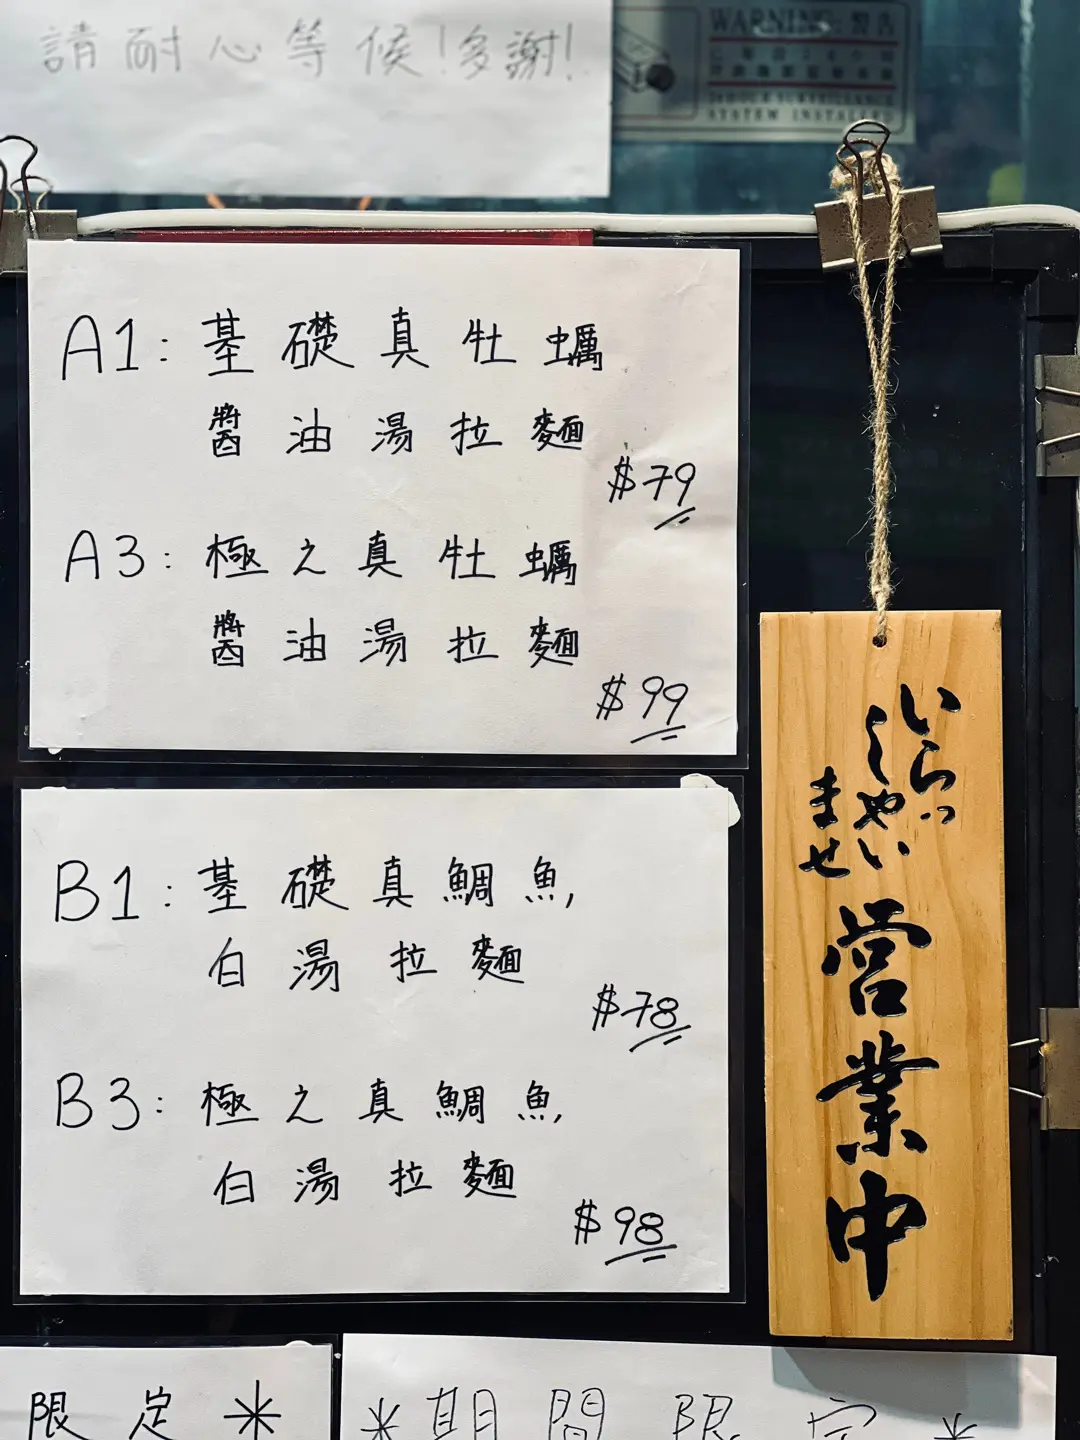 請耐心等候！多謝！
WARNING 警告
SYSTEM INSTALLED
A1：基礎真牡蠣
醬油湯拉麵
$79
A3：極之真牡蠣
醬油湯拉麵
$99
B1：基礎真鯛魚，
白湯拉麵
$78
B3：極之真鯛魚，
白湯拉麵
$98
いらっ
しゃい
ませ
営業中
限定*
*期間限定*